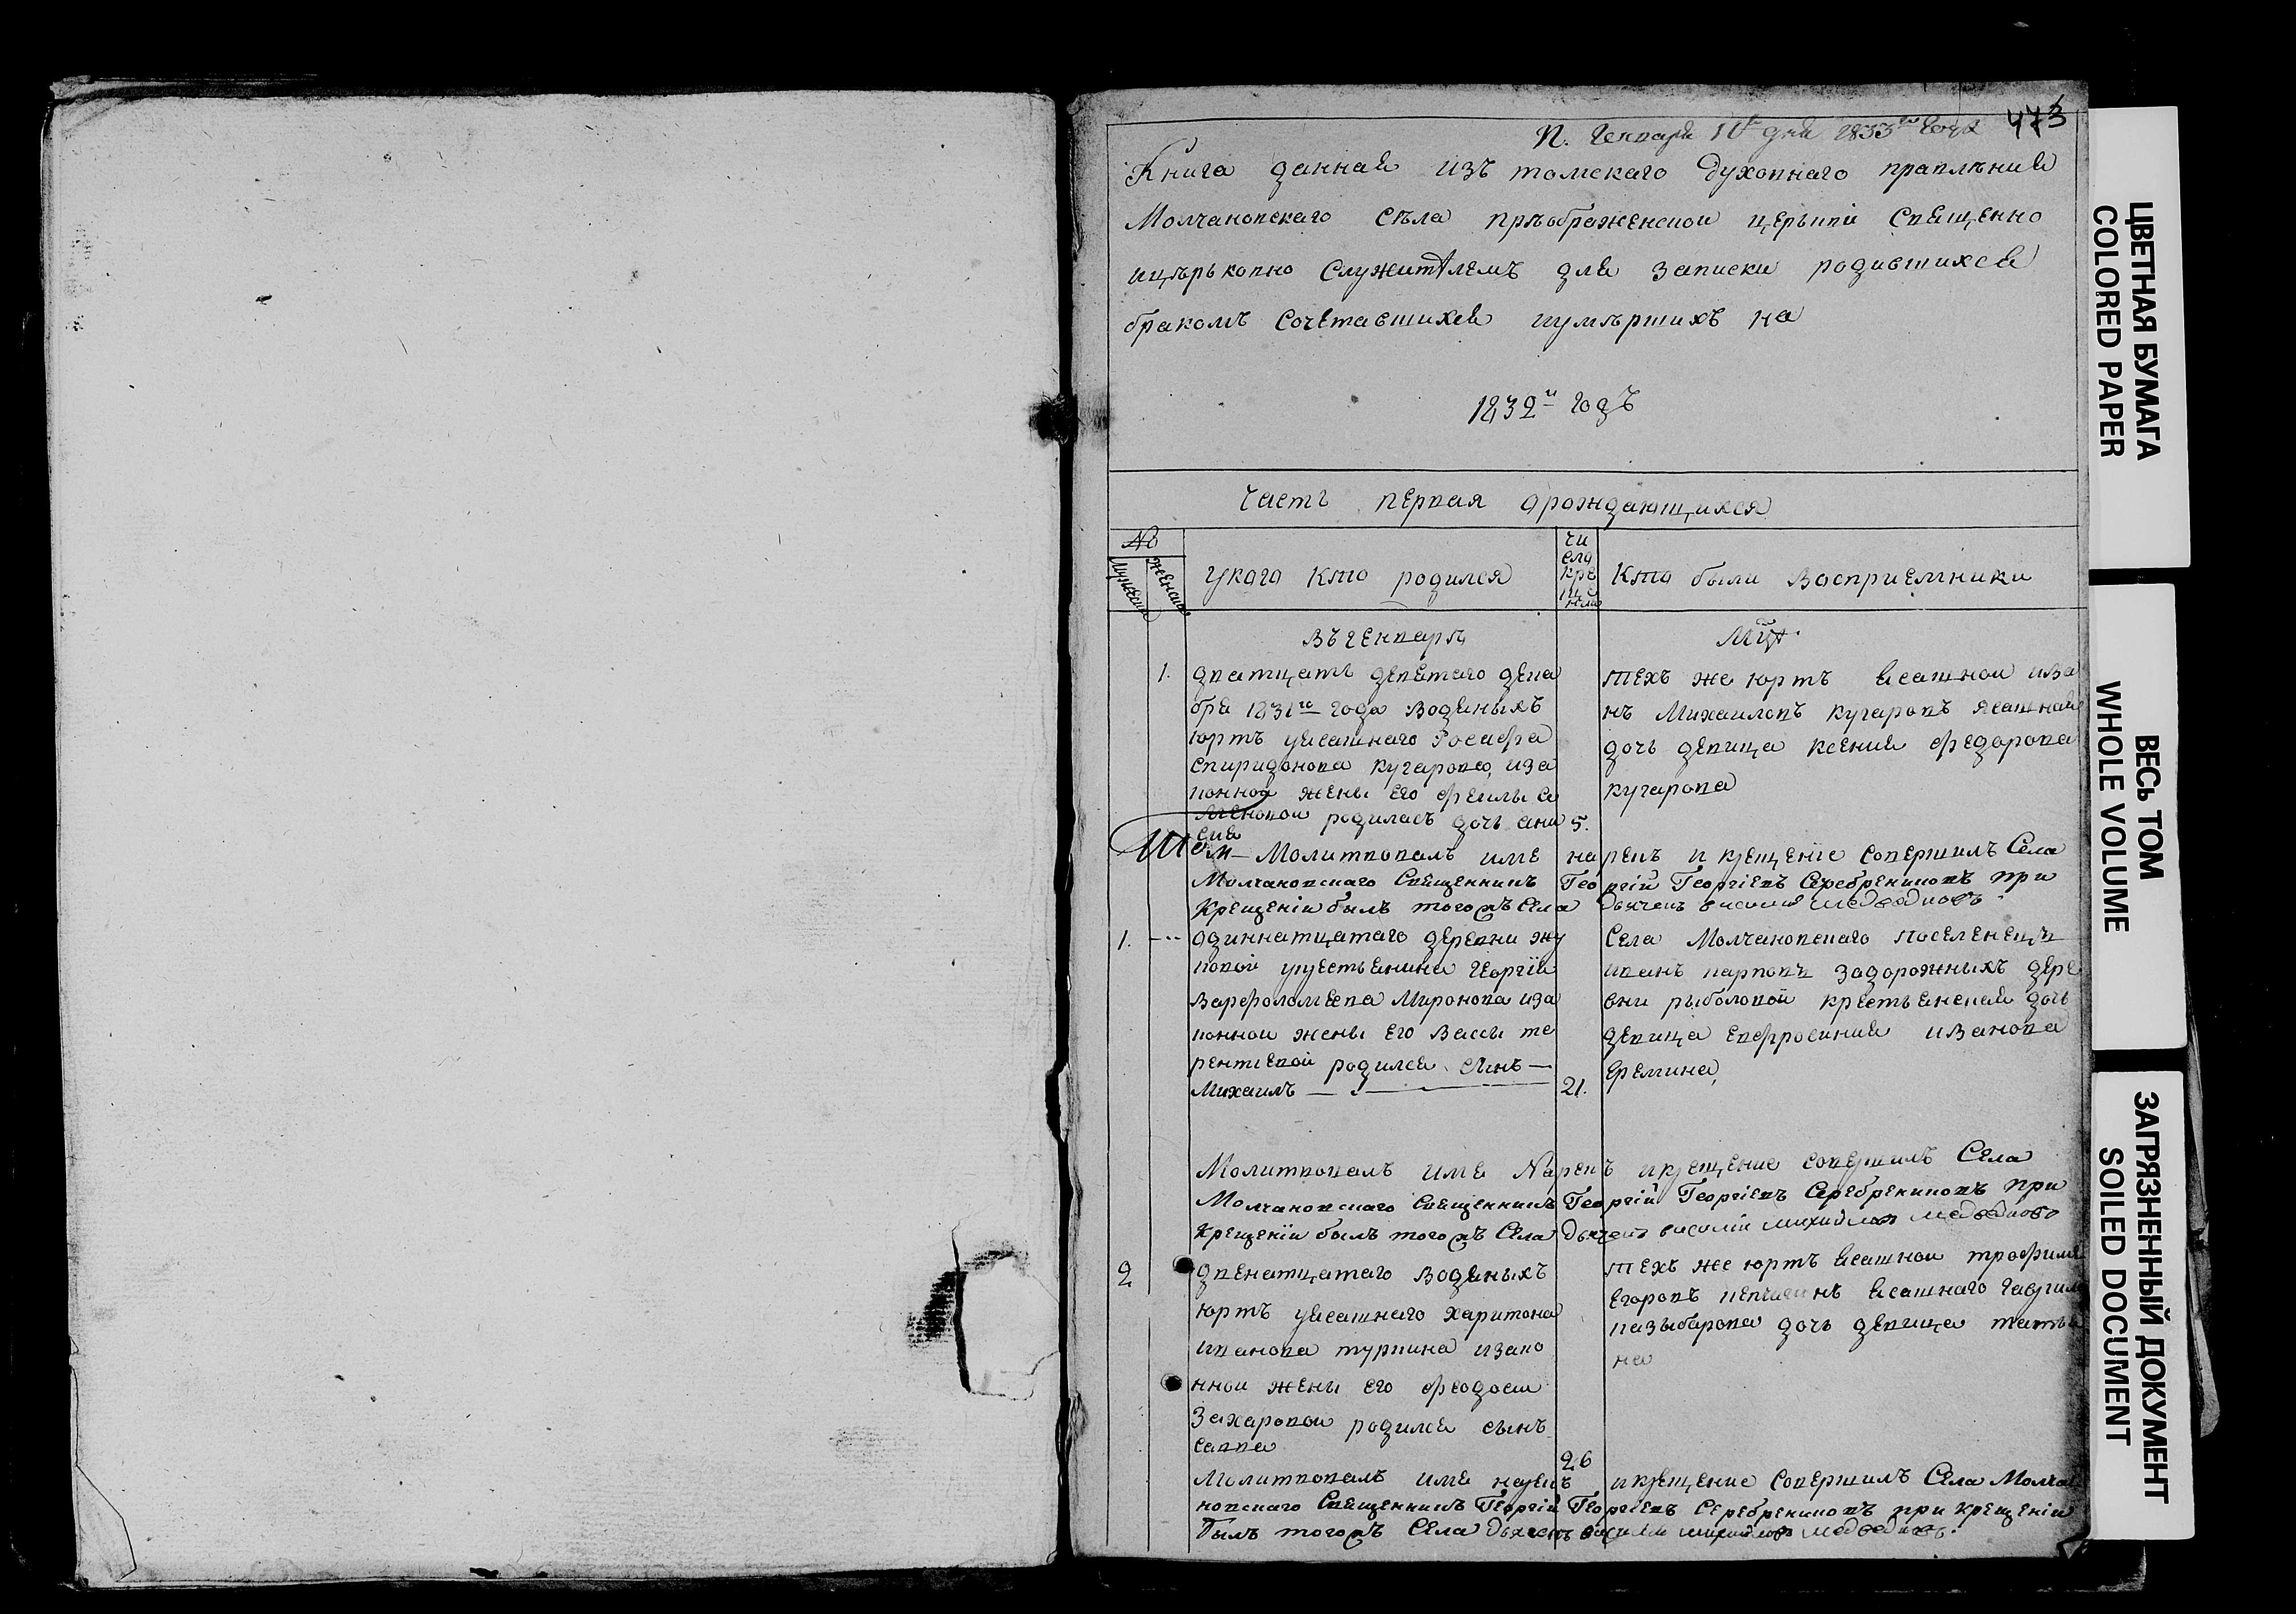 П. Генваря 10 дня 1833го года 473
Книга данная изъ томскаго духовнаго правлѣния
Молчановскаго сѣла прѣображенской церьквѣ Священно
ицѣрьковно служителемъ для записки родившихся
бракомъ сочетавшихся иумѣршихъ на
1832й годъ
Часть первая орождающихся
№
мужеска
женска
укого кто родился
чи
сло
кре
ще
ния
кто были Восприемники
Въ генварѣ
1. дватцать девятаго дека
бря 1831го года Водяныхъ
юртъ уясашнаго
Спиридонова кугарова, иза
конной жены его феклы се
меновой родилась дочь ани
сия
5.
техъ же юртъ ясашной ива
нъ Михаиловъ кугаровъ ясашная
дочь девица ксения федорова
кугарова
Молитвовалъ имя нарекъ и крещение совершилъ Села
Молчановскаго Священникъ Георгій Георгіевъ Серебрениковъ при
Крещеніи былъ тогожъ Села дьячекъ василий медведковъ
1. одиннатцатаго деревни жу
ковой укрестьянина Георгія
Варфоломеева Миронова иза
конной жены его Вассы те
рентиевой родился сынъ —
Михаилъ — 21.
Села Молчановскаго поселенецъ
иванъ карповъ задорожныхъ дере
вни рыболовой крестьянская дочь
девица евфросиния иванова
еремина
Молитвовалъ имя Нарекъ икрещение совершилъ Села
Молчановскаго Священникъ Георгій Георгіевъ Серебрениковъ при
Крещеніи былъ тогожъ Села дьячекъ василіи михайловъ медведковъ
2 двенатцатаго водяныхъ
юртъ уясашнаго харитона
иванова туркина изако
нной жены его феодосии
Захаровой родился сынъ
савва
26
техъ же юртъ ясашной трофимъ
егоровъ ясашнаго гаврила
дочь девица татья
на
Молитвовалъ имя нарекъ икрещение совершилъ Села Молча
новскаго Священникъ Георгій Георгіевъ Серебрениковъ при крещеніи
былъ тогожъ Села дьячекъ василіи михайловъ медведковъ.
ЦВЕТНАЯ БУМАГА
COLORED PAPER
ВЕСЬ ТОМ
WHOLE VOLUME
ЗАГРЯЗНЕННЫЙ ДОКУМЕНТ
SOILED DOCUMENT